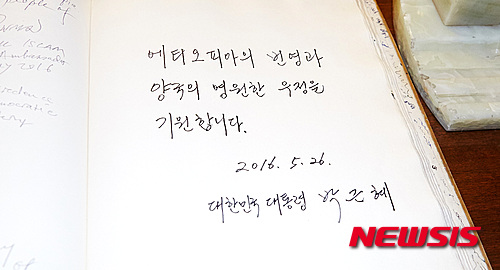 people of
2016
에티오피아의 번영과
양국의 영원한 우정을
기원합니다.
2016. 5. 26.
대한민국 대통령 박근혜
NEWSIS